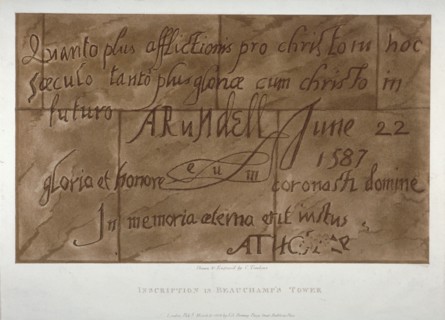 Quanto plus afflictionis pro christo in hoc
sæculo tanto plus gloriæ cum christo in
futuro
ARUNDELL June 22
1587
gloria et honore eum coronasti domine
In memoria æterna erit iustus
INSCRIPTION IN BEAUCHAMP'S TOWER